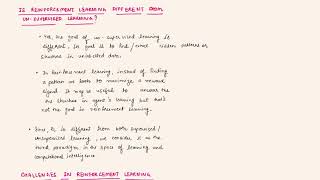 IS REINFORCEMENT LEARNING DIFFERENT FROM
UN-SUPERVISED LEARNING?
• Yes, the goal of un-supervised learning is
different, its goal is to find / hidden patterns or
structure in unlabelled data.
• In Reinforcement learning, instead of finding
a pattern we look to maximize a reward
signal. It maybe useful to uncover the
structure in agent's learning but that's
not the goal in reinforcement learning.
• Since, it is different from both supervised/
Unsupervised learning, we consider it as the
third paradigm, in the space of learning and
computational intelligence
CHALLENGES IN REINFORCEMENT LEARNING